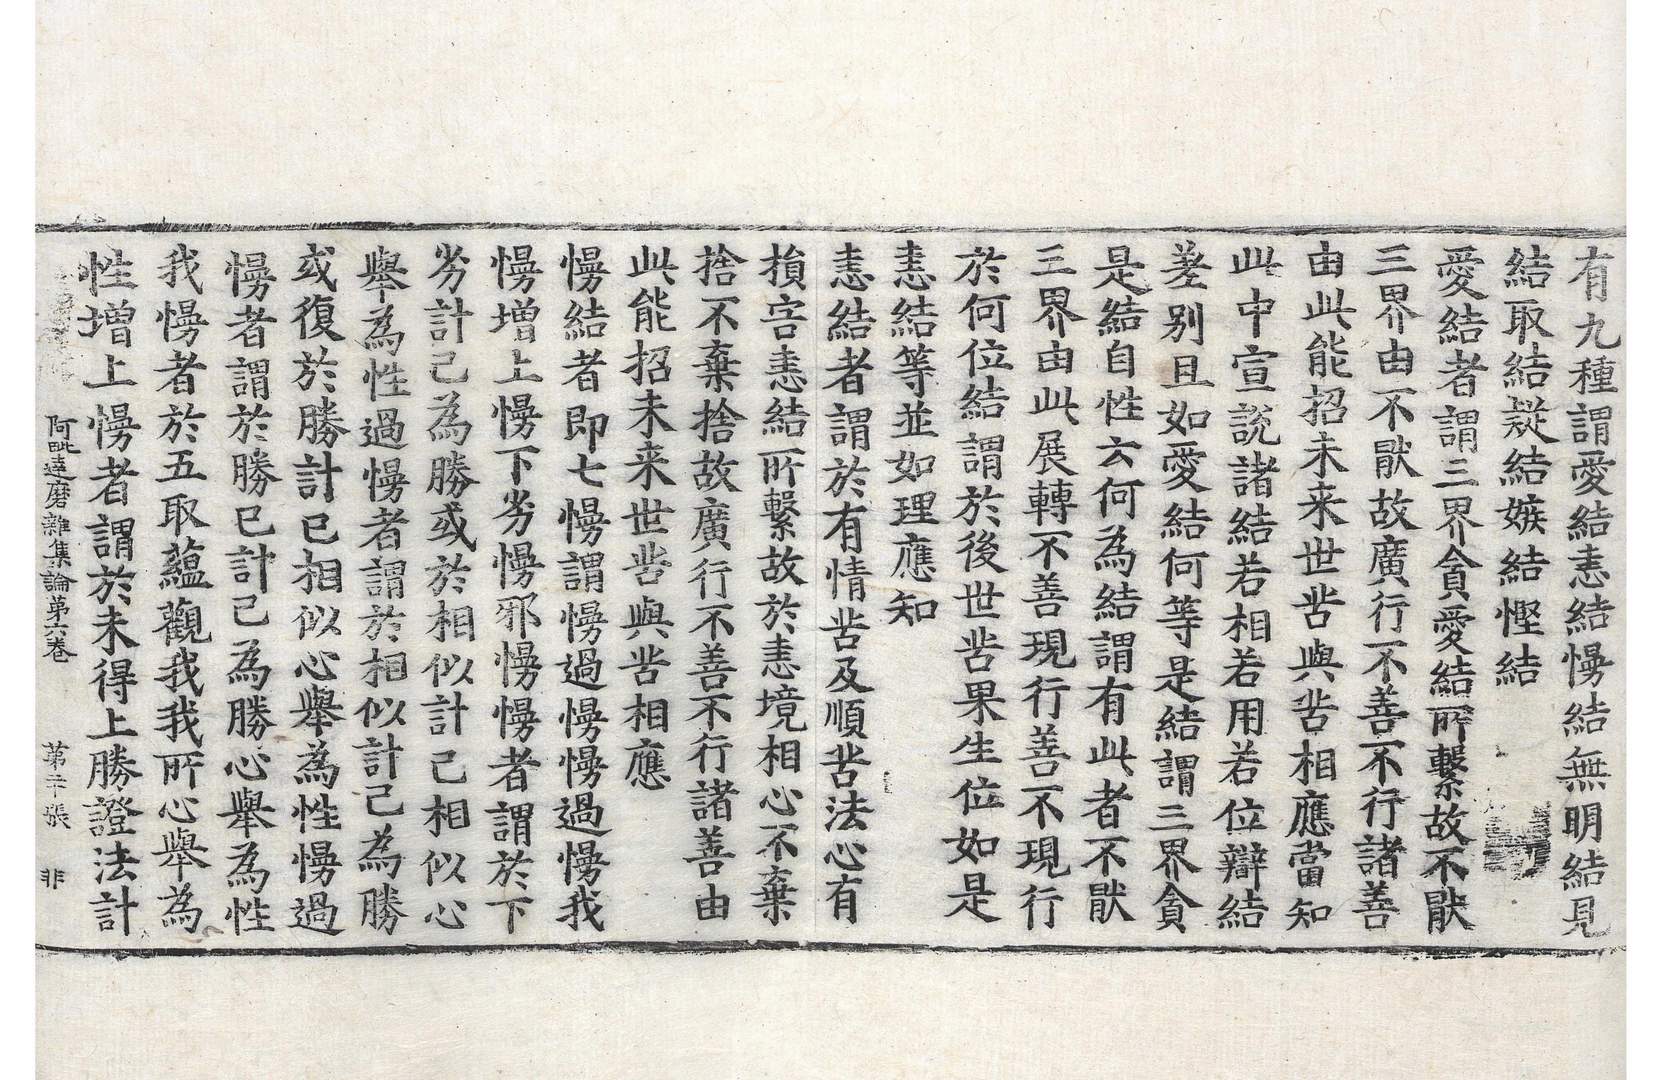 有九種謂愛結恚結慢結無明結見
結取結疑結嫉結慳結
愛結者謂三界貪愛結所繫故不厭
三界由不厭故廣行不善不行諸善
由此能招未来世苦與苦相應當知
此中宣說諸結若相若用若位辯結
差别且如愛結何等是結謂三界貪
是結自性云何為結謂有此者不厭
三界由此展轉不善現行善不現行
於何位結謂於後世苦果生位如是
恚結等並如理應知
恚結者謂於有情苦及順苦法心有
損害恚結所繫故於恚境相心不棄
捨不棄捨故廣行不善不行諸善由
此能招未来世苦與苦相應
慢結者即七慢謂慢過慢慢過慢我
慢增上慢下劣慢邪慢慢者謂於下
劣計己為勝或於相似計己相似心
舉為性過慢者謂於相似計己為勝
或復於勝計己相似心舉為性慢過
慢者謂於勝已計己為勝心舉為性
我慢者於五取蘊觀我我所心舉為
性增上慢者謂於未得上勝證法計
阿毗達磨雜集論第六卷 第二十張 非